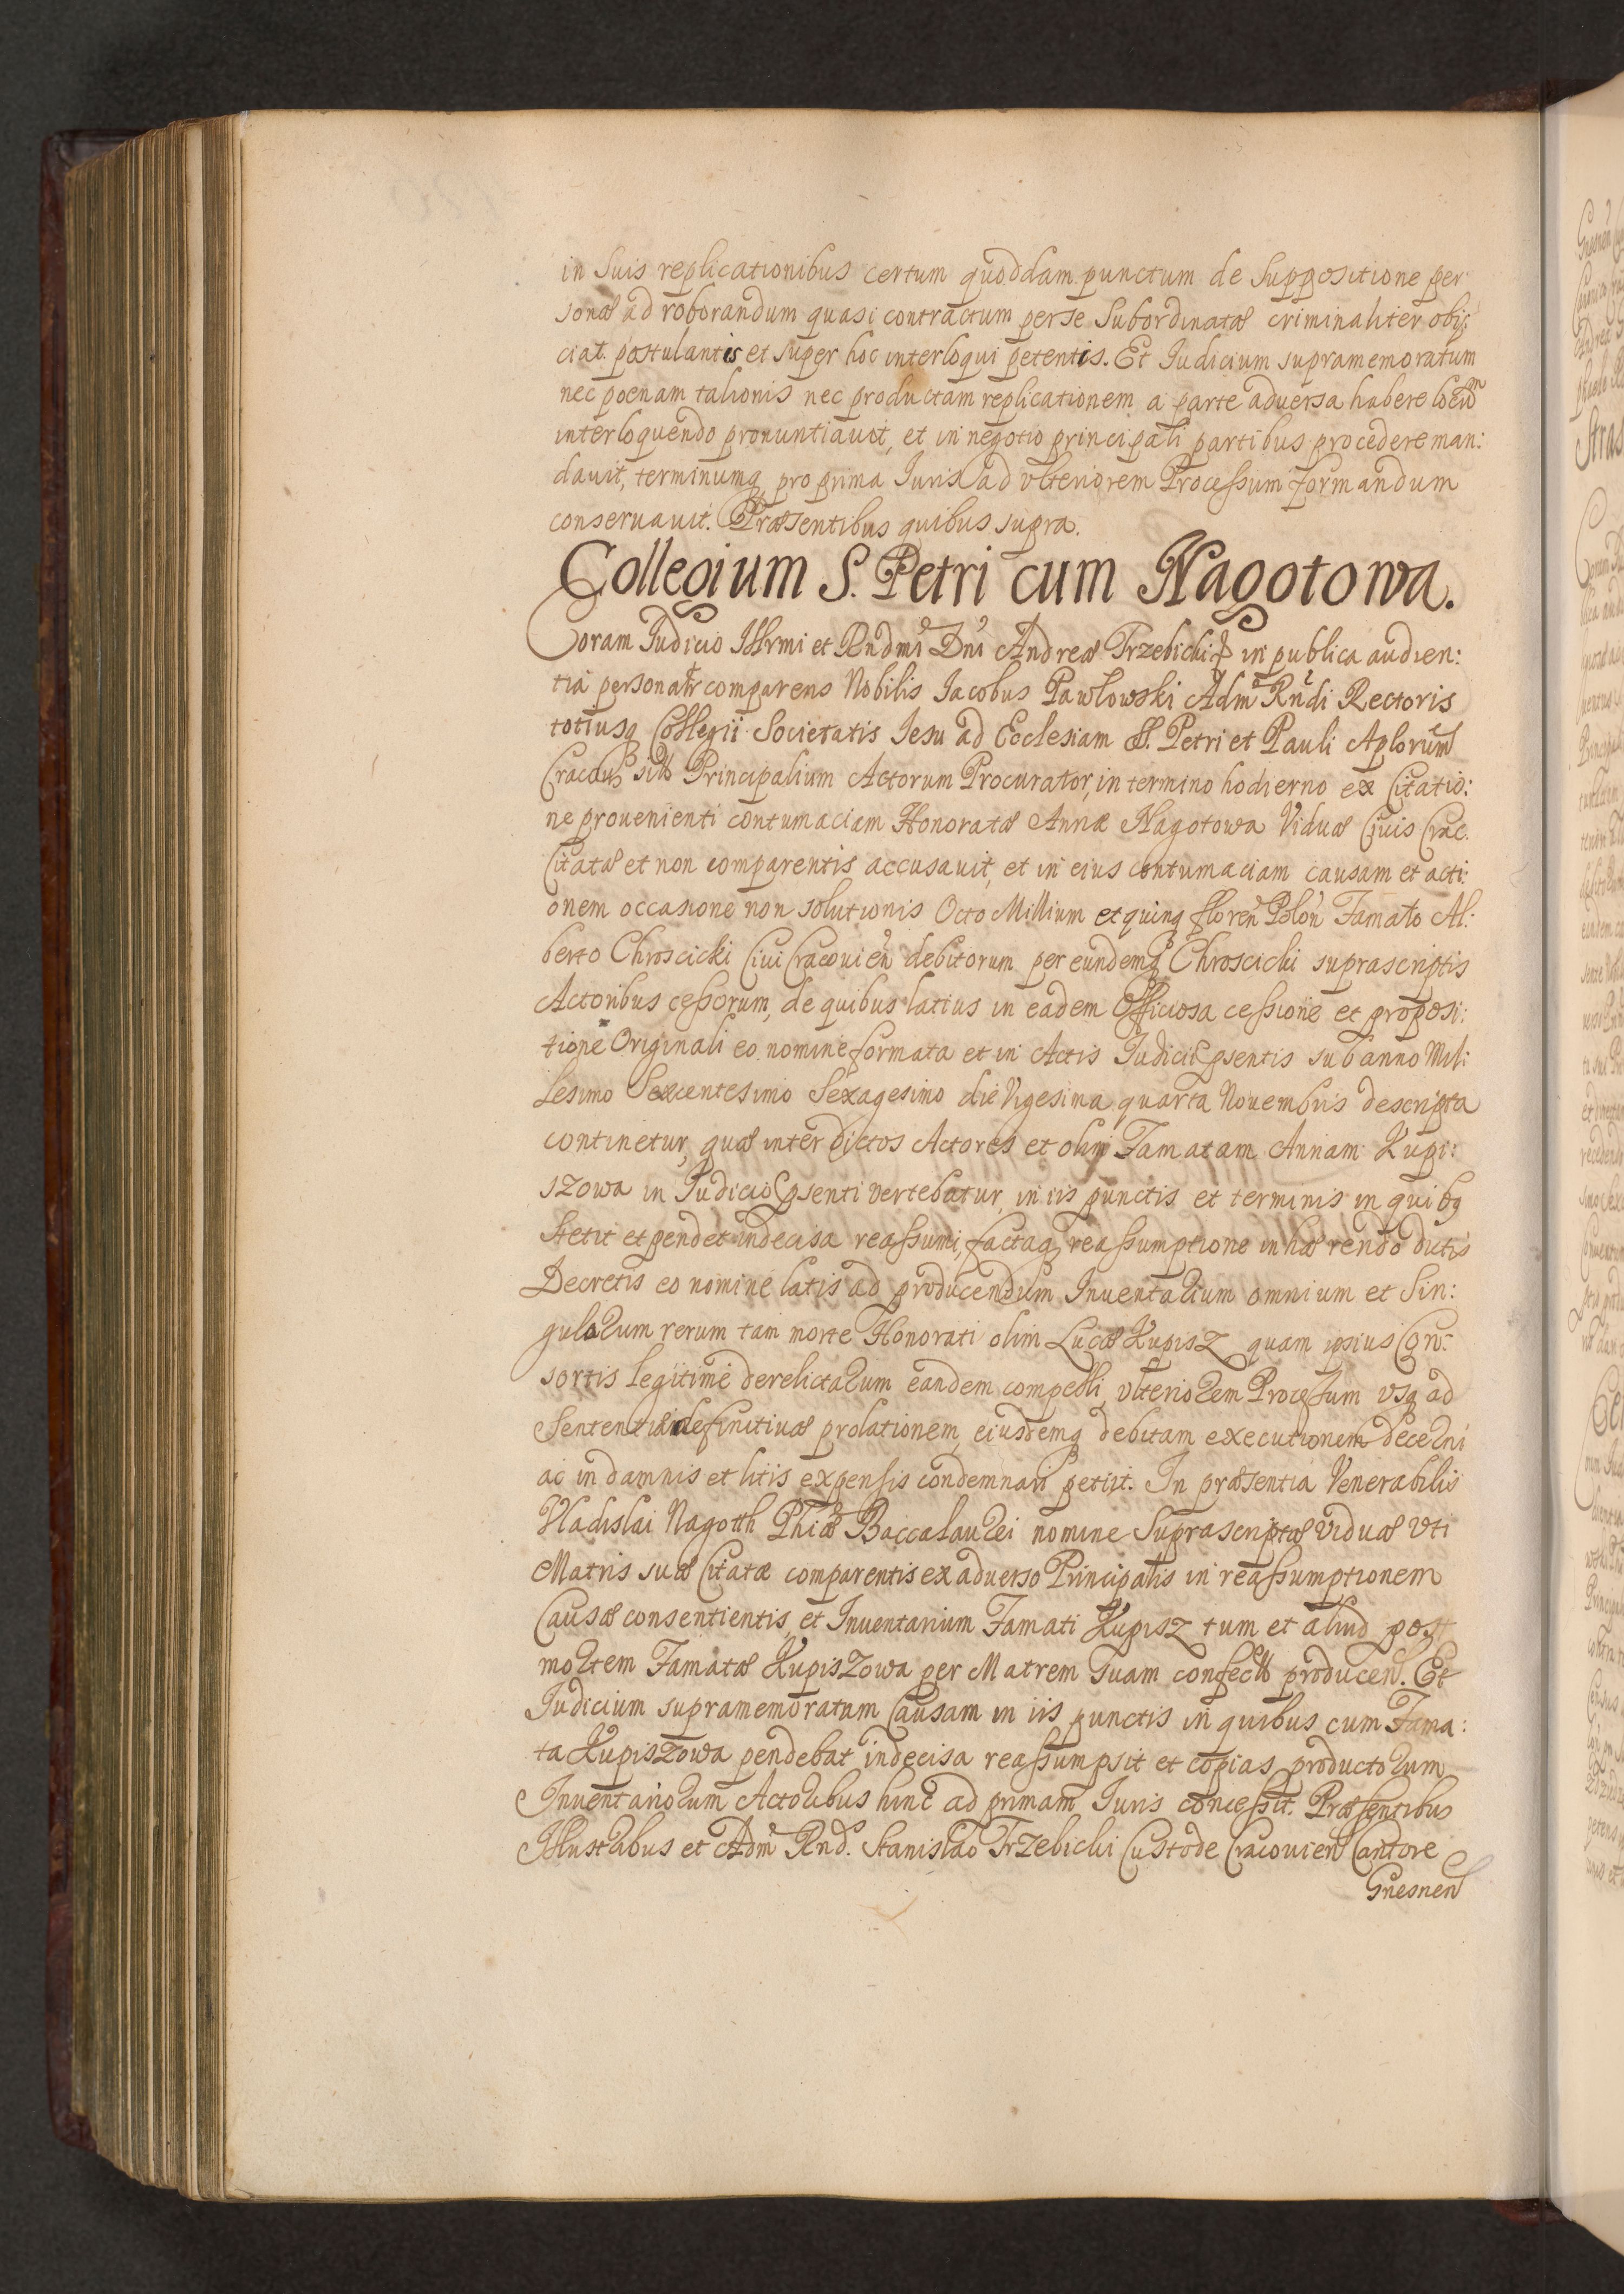 in suis replicationibus certum quoddam punctum de suppositione per
sonæ ad roborandum quasi contractum per se subordinatæ criminaliter obij
ciat. postulantis et super hoc interloqui petentis. Et Iudicium supramemoratum
nec poenam talionis nec productam replicationem a parte aduersa habere locũ
interloquendo pronuntiauit, et in negotio principali partibus procedere man:
dauit, terminumq pro prima Iuris ad vlteriorem Processum formandum
conseruauit. Præsentibus quibus supra.
Collegium S. Petri cum Nagotowa.
Coram Iudicio Illrmi et Rndmi Dni Andreæ Trzebicki in publica audien:
tia personalr comparens Nobilis Iacobus Pawlowski Adm Rndi Rectoris
totiusq Collegii Societatis Iesu ad Ecclesiam SS. Petri et Pauli Aplorum
Cracouiæ Principalium Actorum Procurator, in termino hodierno ex Citatio:
ne prouenienti contumaciam Honoratæ Annæ Nagotowa Viduæ Ciuis Crac.
Citatæ et non comparentis accusauit, et in eius contumaciam causam et acti:
onem occasione non solutionis Octo Millium et quinq floren Polon Famato Al:
berto Chroscicki Ciui Cracouien debitorum per eundemq Chroscicki suprascriptis
Actoribus cessorum, de quibus latius in eadem Officiosa cessione et proposi:
tione Originali eo nomine formata et in Actis Iudicii psentis sub anno Mil:
lesimo Sexcentesimo Sexagesimo die Vigesima quarta Nouembris descripta
continetur, quæ inter dictos Actores et olim Famatam Annam Kupi:
szowa in Iudicio psenti vertebatur, in iis punctis et terminis in quibq
stetit et pendet indecisa reassumi, factaq reassumptione inhærendo dictis
Decretis eo nomine latis ad producendum Inuentarium omnium et Sin:
gularum rerum tam morte Honorati olim Lucæ Kupisz quam ipsius Con:
sortis legitime derelictarum eandem compelli, vlteriorem Processum vsq ad
Sententiæ definitiuæ prolationem, eiusdemq debitam executionem decerni
ac in damnis et litis expensis condemnari petijt. In præsentia Venerabilis
Vladislai Nagotth Phiæ Baccalaurei nomine Suprascriptæ Viduæ Vti
Matris suæ Citatæ comparentis ex aduerso Principalis in reassumptionem
Causæ consentientis, et Inuentarium Famati Kupisz tum et aliud post
mortem Famatæ Kupiszowa per Matrem suam confectũ producen. Et
Iudicium supramemoratum Causam in iis punctis in quibus cum Fama:
ta Kupiszowa pendebat indecisa reassumpsit et copias productorum
Inuentariorum Actoribus hinc ad primam Iuris concessit. Præsentibus
Illustribus et Adm Rnd. Stanislao Trzebicki Custode Cracouien Cantore
Gnesnen